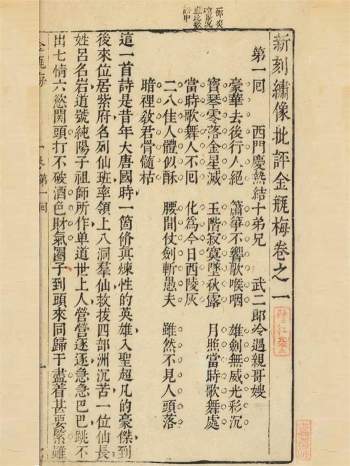 新刻繡像批評金瓶梅卷之一
第一回 西門慶熱結十弟兄 武二郎冷遇親哥嫂
豪華去後行人絕 簫箏不響歌喉咽 雄劍無威光彩沉
寶琴零落金星滅 玉階寂寞墜秋露 月照當時歌舞處
當時歌舞人不回 化為今日西陵灰
二八佳人體似酥 腰間仗劍斬愚夫 雖然不見人頭落
暗裡敎君骨髓枯
這一首詩是昔年大唐國時一箇脩真煉性的英雄入聖超凡的豪傑到
後來位居紫府名列仙班率領上八洞羣仙救拔四部洲沉苦一位仙長
姓呂名岩道號純陽子祖師所作单道世上人營營逐逐急急巴巴跳不
出七情六慾関頭打不破酒色財氣圈子到頭來同歸于盡着甚要緊雖